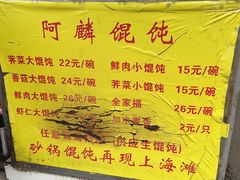 阿麟馄饨
荠菜大馄饨 22元/碗
鲜肉小馄饨 15元/碗
香菇大馄饨 24元/碗
荠菜小馄饨 15元/碗
鲜肉大馄饨 26元/碗
全家福 26元/碗
虾仁大馄饨
加大 2元/只
任
(供应生馄饨)
砂锅馄饨再现上海滩